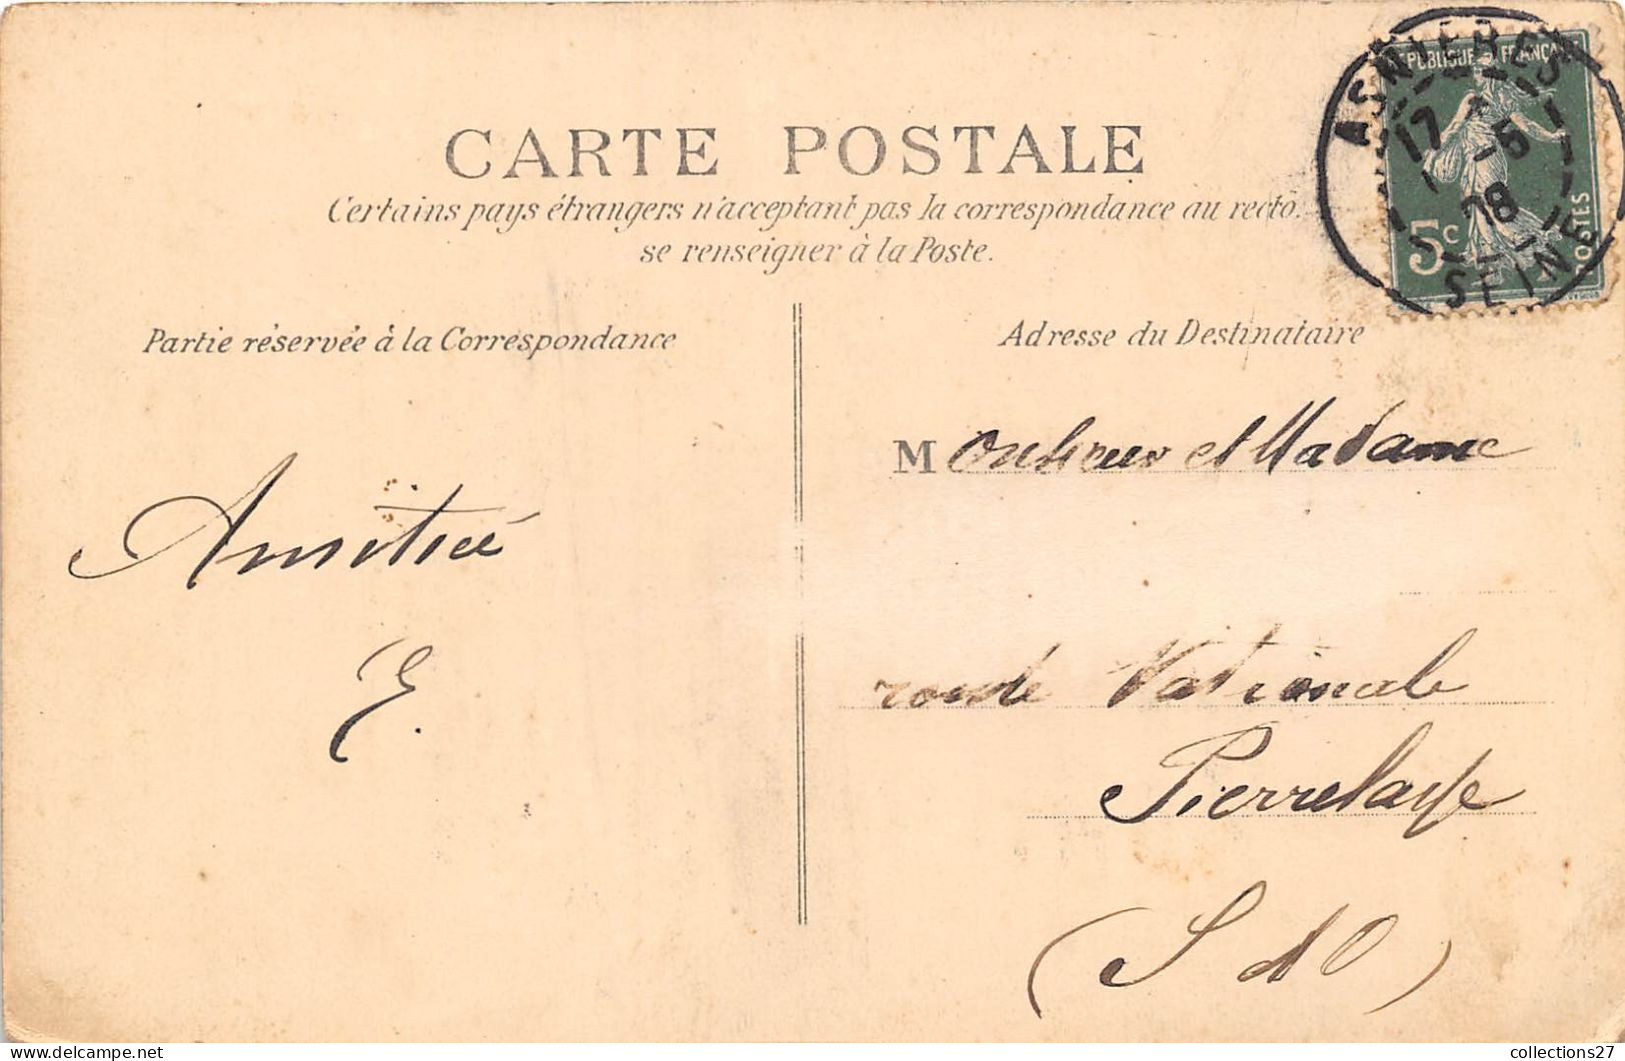 CARTE POSTALE
Certains pays étrangers n'acceptant pas la correspondance au recto.
se renseigner à la Poste.
RÉPUBLIQUE FRANÇAISE
5c
POSTES
ASNIERES
17 -5
08
SEINE
Partie réservée à la Correspondance
Amitié
E.
Adresse du Destinataire
Monsieur et Madame
route Nationale
Pierrelaye
(S d O)
collections27